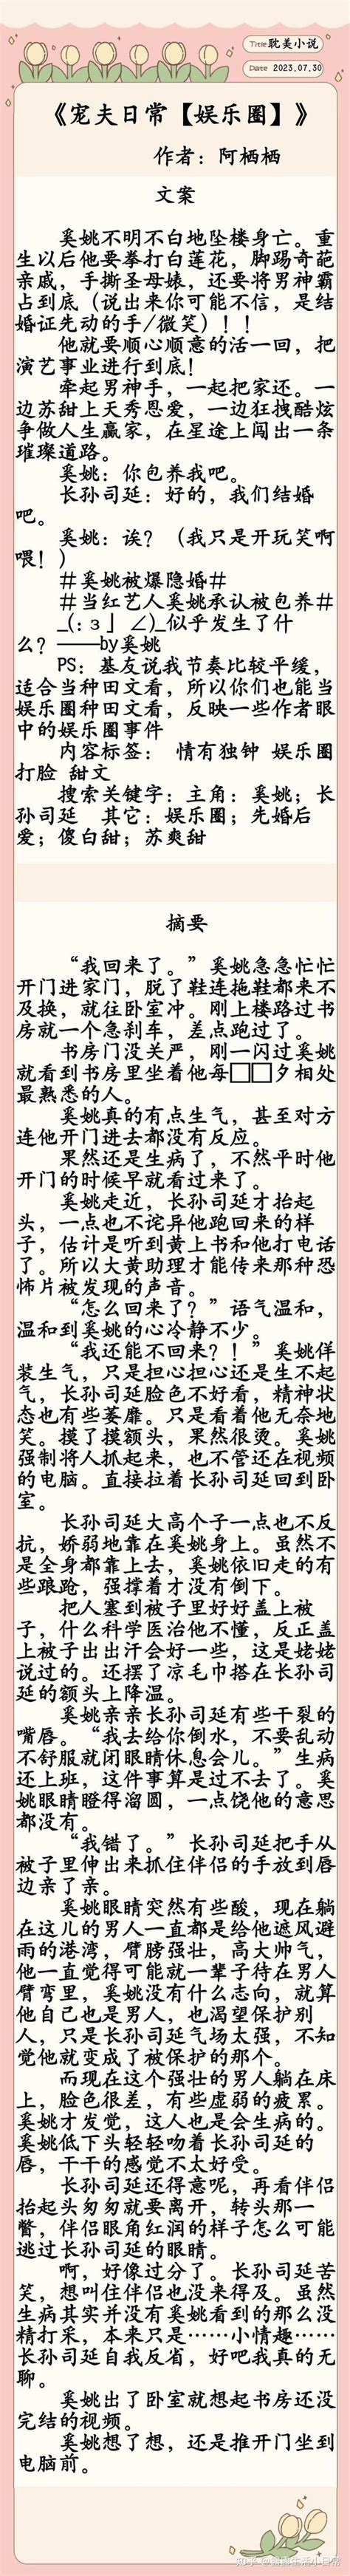 Title 耽美小说
Date 2023.07.30
《宠夫日常【娱乐圈】》
作者：阿栖栖
文案
奚姚不明不白地坠楼身亡。重
生以后他要拳打白莲花，脚踢奇葩
亲戚，手撕圣母婊，还要将男神霸
占到底（说出来你可能不信，是结
婚证先动的手/微笑）！！
他就要顺心顺意的活一回，把
演艺事业进行到底！
牵起男神手，一起把家还。一
边苏甜上天秀恩爱，一边狂拽酷炫
争做人生赢家，在星途上闯出一条
璀璨道路。
奚姚：你包养我吧。
长孙司延：好的，我们结婚
吧。
奚姚：诶？（我只是开玩笑啊
喂！）
＃奚姚被爆隐婚＃
＃当红艺人奚姚承认被包养＃
_(:з」∠)_似乎发生了什
么？——by奚姚
PS：基友说我节奏比较平缓，
适合当种田文看，所以你们也能当
娱乐圈种田文看，反映一些作者眼
中的娱乐圈事件
内容标签： 情有独钟 娱乐圈
打脸 甜文
搜索关键字：主角：奚姚；长
孙司延 其它：娱乐圈；先婚后
爱；傻白甜；苏爽甜
摘要
“我回来了。”奚姚急急忙忙
开门进家门，脱了鞋连拖鞋都来不
及换，就往卧室冲。刚上楼路过书
房就一个急刹车，差点跑过了。
书房门没关严，刚一闪过奚姚
就看到书房里坐着他每□□夕相处
最熟悉的人。
奚姚真的有点生气，甚至对方
连他开门进去都没有反应。
果然还是生病了，不然平时他
开门的时候早就看过来了。
奚姚走近，长孙司延才抬起
头，一点也不诧异他跑回来的样
子，估计是听到黄上书和他打电话
了。所以大黄助理才能传来那种恐
怖片被发现的声音。
“怎么回来了？”语气温和，
温和到奚姚的心冷静不少。
“我还能不回来？！”奚姚佯
装生气，只是担心担心还是生不起
气，长孙司延脸色不好看，精神状
态也有些萎靡。只是看着他无奈地
笑。摸了摸额头，果然很烫。奚姚
强制将人抓起来，也不管还在视频
的电脑。直接拉着长孙司延回到卧
室。
长孙司延大高个子一点也不反
抗，娇弱地靠在奚姚身上。虽然不
是全身都靠上去，奚姚依旧走的有
些踉跄，强撑着才没有倒下。
把人塞到被子里好好盖上被
子，什么科学医治他不懂，反正盖
上被子出出汗会好一些，这是姥姥
说过的。还摆了凉毛巾搭在长孙司
延的额头上降温。
奚姚亲亲长孙司延有些干裂的
嘴唇。“我去给你倒水，不要乱动
不舒服就闭眼睛休息会儿。”生病
还上班，这件事算是过不去了。奚
姚眼睛瞪得溜圆，一点饶他的意思
都没有。
“我错了。”长孙司延把手从
被子里伸出来抓住伴侣的手放到唇
边亲了亲。
奚姚眼睛突然有些酸，现在躺
在这儿的男人一直都是给他遮风避
雨的港湾，臂膀强壮，高大帅气，
他一直觉得可能就一辈子待在男人
臂弯里，奚姚没有什么志向，就算
他自己也是男人，也渴望保护别
人，只是长孙司延气场太强，不知
觉他就变成了被保护的那个。
而现在这个强壮的男人躺在床
上，脸色很差，有些虚弱的疲累。
奚姚才发觉，这人也是会生病的。
奚姚低下头轻轻吻着长孙司延的
唇，干干的感觉不太好受。
长孙司延还得意呢，再看伴侣
抬起头匆匆就要离开，转头那一
瞥，伴侣眼角红润的样子怎么可能
逃过长孙司延的眼睛。
啊，好像过分了。长孙司延苦
笑，想叫住伴侣也没来得及。虽然
生病其实并没有奚姚看到的那么没
精打采，本来只是……小情趣……
长孙司延自我反省，好吧我真的无
聊。
奚姚出了卧室就想起书房还没
完结的视频。
奚姚想了想，还是推开门坐到
电脑前。